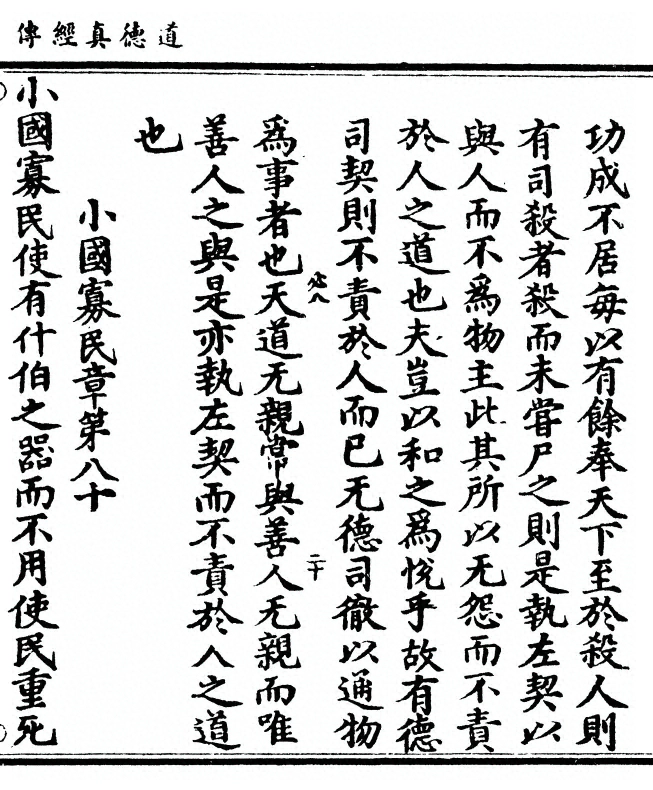 道德真經傳
功成不居每以有餘奉天下至於殺人則
有司殺者殺而未嘗尸之則是執左契以
與人而不爲物主此其所以无怨而不責
於人之道也夫豈以和之爲悅乎故有德
司契則不責於人而已无德司徹以通物
爲事者也天道无親常與善人无親而唯
善人之與是亦執左契而不責於人之道
也
小國寡民章第八十
小國寡民使有什伯之器而不用使民重死
二十